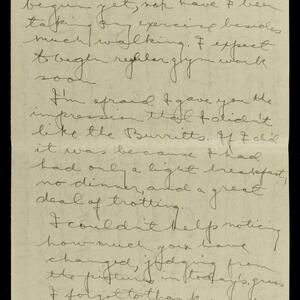 begun yet, nor have I been
taking any exercise besides
much walking. I expect
to begin regular gym work
soon.
I'm afraid I gave you the
impression that I didn't
like the Burritts. If I did
it was because I had
had only a light breakfast,
no dinner, and a great
deal of trotting.
I couldn't help noticing
how much you have
changed, judging from
the picture in today's
I forgot to thank